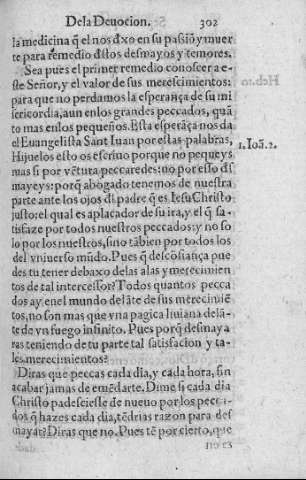 De la Deuocion. 302
la medicina q̃ el nos dxo en su passiõ y muer
te para remedio d̃stos desmayos y temores.
Sea pues el primer remedio conoscer a e-
ste Señor, y el valor de sus merescimientos:
para que no perdamos la esperança de su mi
sericordia, aun en los grandes peccados, quã
to mas en los pequeños. Esta esperãça nos da
el Euangelista Sant Iuan por estas palabras,
Hijuelos esto os escriuo porque no pequeys
mas si por vẽtura peccaredes: no por esto d̃s
mayeys: porq̃ abogado tenemos de nuestra
parte ante los ojos d̃l padre q̃ es Iesu Christo
justo: el qual es aplacador de su ira, y el q̃ sa-
tisfaze por todos nuestros peccados: y no so
lo por los nuestros, sino tãbien por todos los
del vniuerso mũdo. Pues q̃ descõfiança pue
des tu tener debaxo de las alas y merecimien
tos de tal intercessor? Todos quantos pecca
dos ay en el mundo delãte de sus merecimiẽ
tos, no son mas que vna pagica liuiana delã-
te de vn fuego infinito. Pues porq̃ desmaya
ras teniendo de tu parte tal satisfacion y ta-
les merecimientos?
Diras que peccas cada dia, y cada hora, sin
acabar jamas de emẽdarte. Dime si cada dia
Christo padesciesse de nueuo por los pecca-
dos q̃ hazes cada dia, tẽdrias razon para des
mayar? Diras que no. Pues tẽ por cierto, que
no es
1. Ioã. 2.